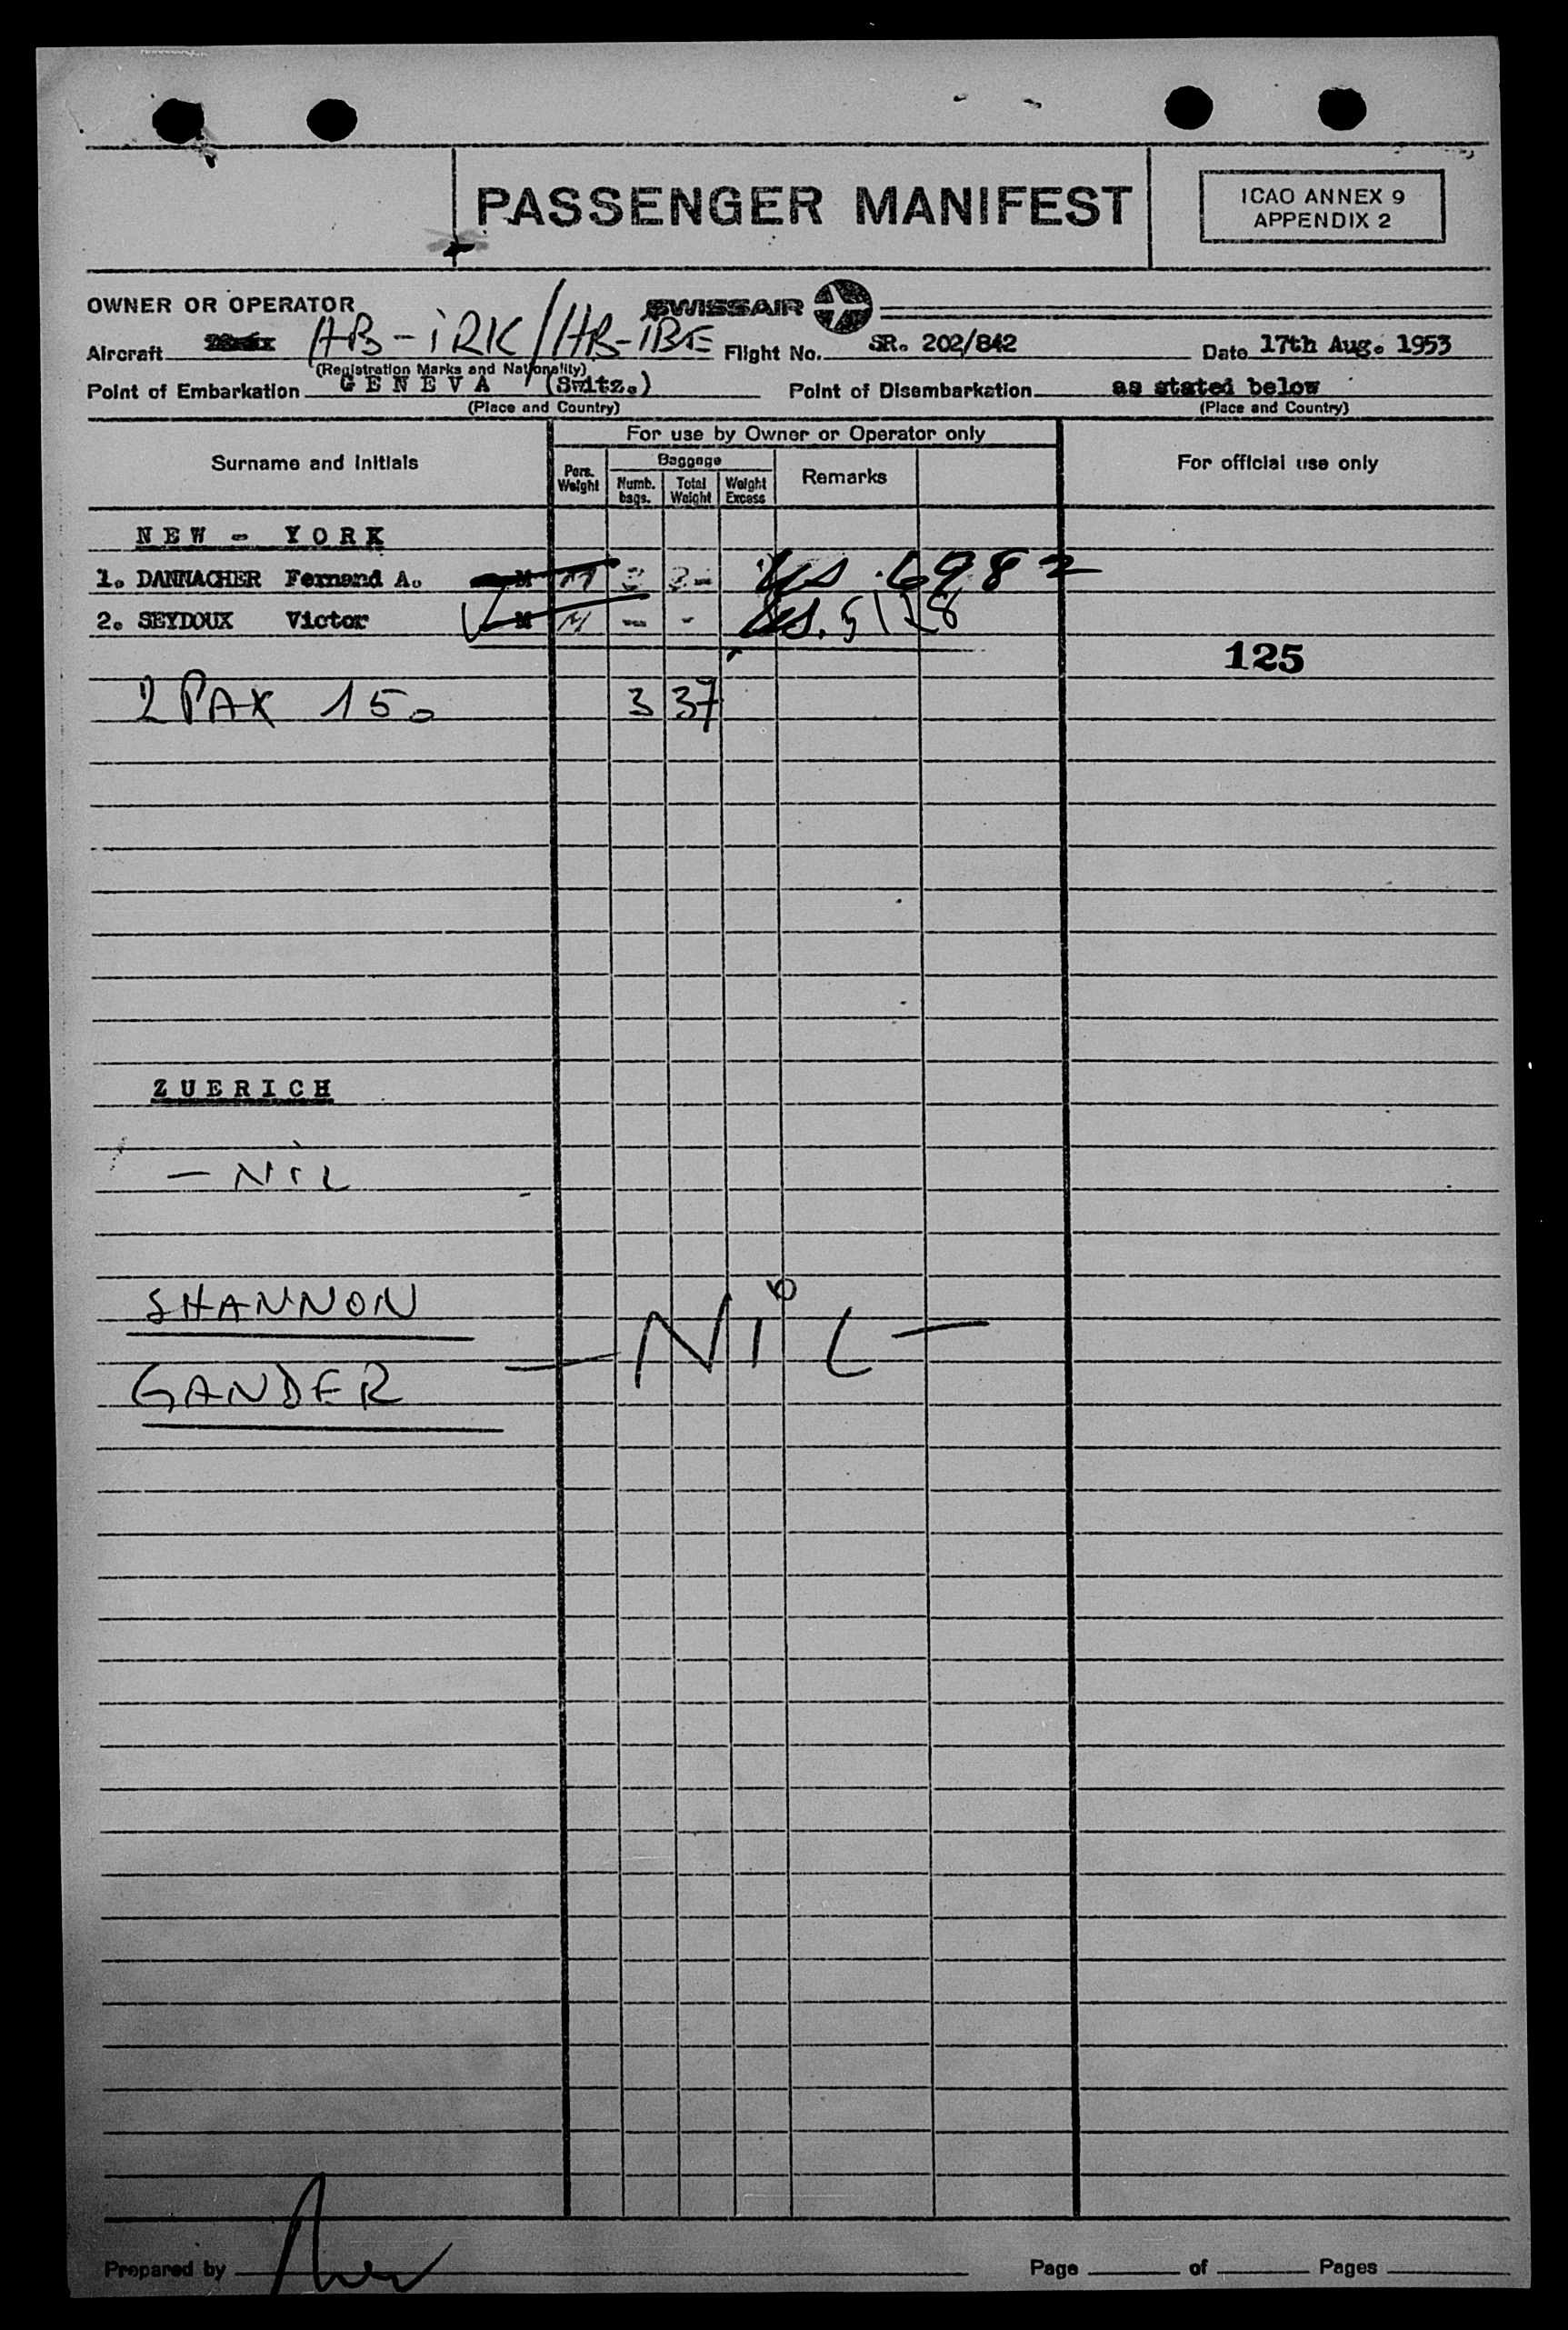 PASSENGER MANIFEST
ICAO ANNEX 9
APPENDIX 2
OWNER OR OPERATOR SWISSAIR
Aircraft HB-iRK/HB-IBE Flight No. SR. 202/842 Date 17th Aug. 1953
(Registration Marks and Nationality)
Point of Embarkation G E N E V A (Switz.) Point of Disembarkation as stated below
(Place and Country) (Place and Country)
For use by Owner or Operator only
Surname and Initials Pers. Weight Baggage Remarks For official use only
Numb. bags. Total Weight Weight Excess
N E W - Y O R K
1. DANNACHER Fernand A. M M 6982
2. SEYDOUX Victor M M - - 5128
125
2 PAX 150 3 37
Z U E R I C H
- NiL
SHANNON
- NiL -
GANDER
Prepared by Page of Pages